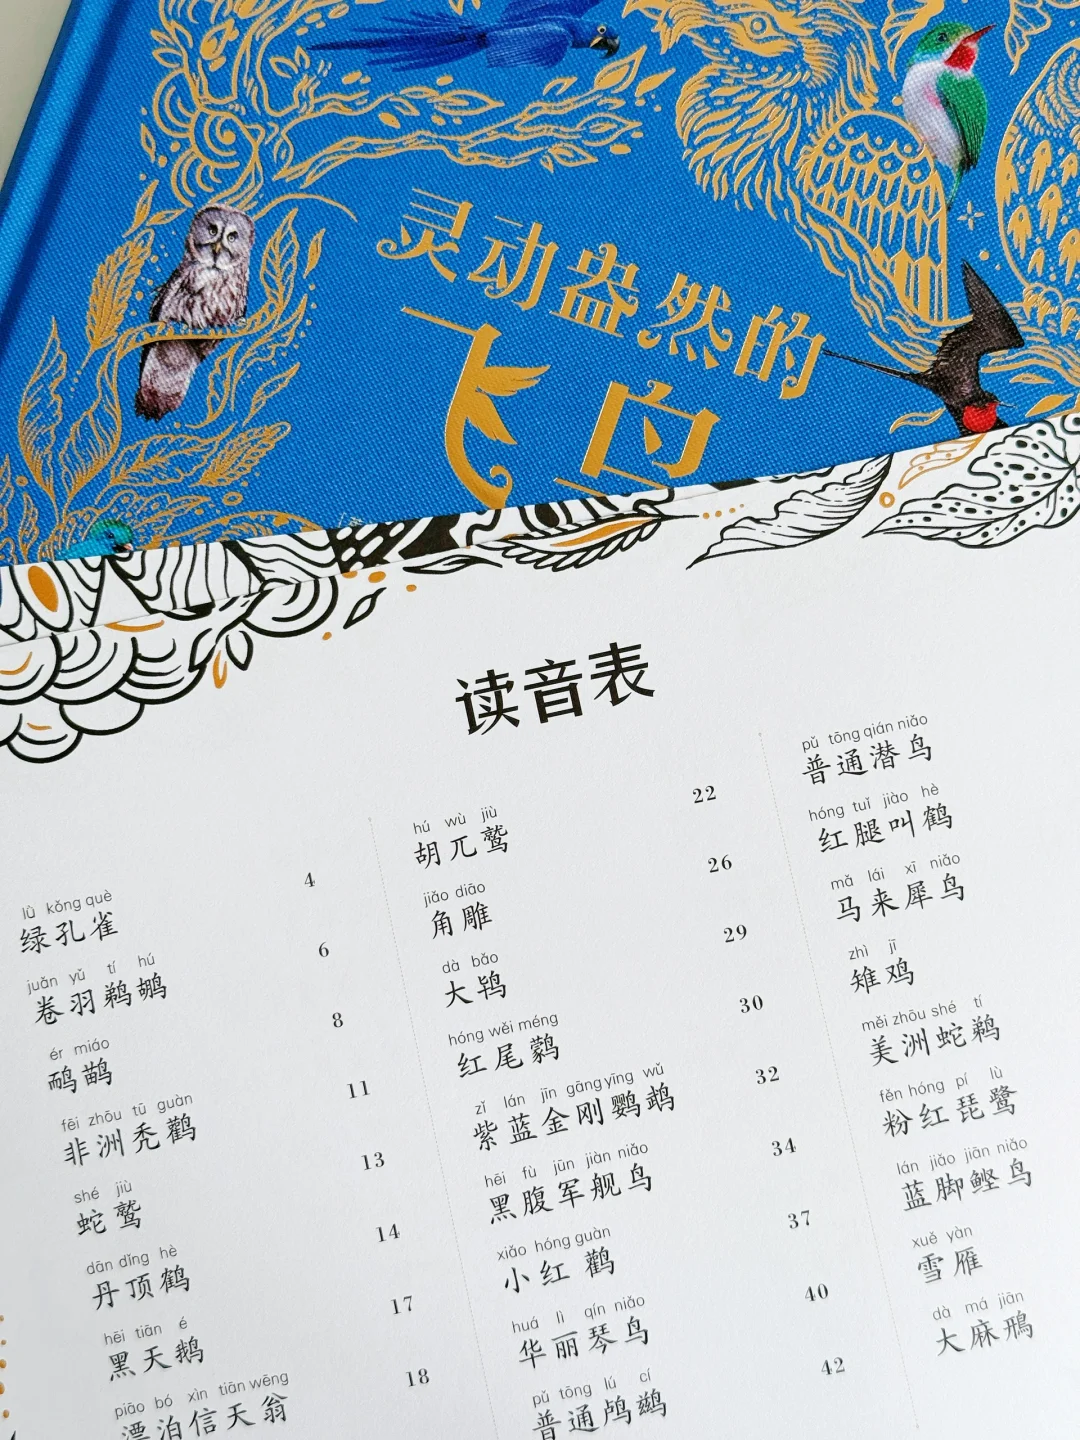 灵动盎然的
飞鸟
读音表
lǜ kǒng què
绿孔雀 4
juǎn yǔ tí hú
卷羽鹈鹕 6
ér miáo
鸸鹋 8
fēi zhōu tū guàn
非洲秃鹳 11
shé jiù
蛇鹫 13
dān dǐng hè
丹顶鹤 14
hēi tiān é
黑天鹅 17
piāo bó xìn tiān wēng
漂泊信天翁 18
hú wù jiù
胡兀鹫 22
jiǎo diāo
角雕 26
dà bǎo
大鸨 29
hóng wěi méng
红尾鹲 30
zǐ lán jīn gāng yīng wǔ
紫蓝金刚鹦鹉 32
hēi fù jūn jiàn niǎo
黑腹军舰鸟 34
xiǎo hóng guàn
小红鹳 37
huá lì qín niǎo
华丽琴鸟 40
pǔ tōng lú cí
普通鸬鹚 42
pǔ tōng qián niǎo
普通潜鸟
hóng tuǐ jiào hè
红腿叫鹤
mǎ lái xī niǎo
马来犀鸟
zhì jī
雉鸡
měi zhōu shé tí
美洲蛇鹈
fěn hóng pí lù
粉红琵鹭
lán jiǎo jiān niǎo
蓝脚鲣鸟
xuě yàn
雪雁
dà má jiān
大麻鳽